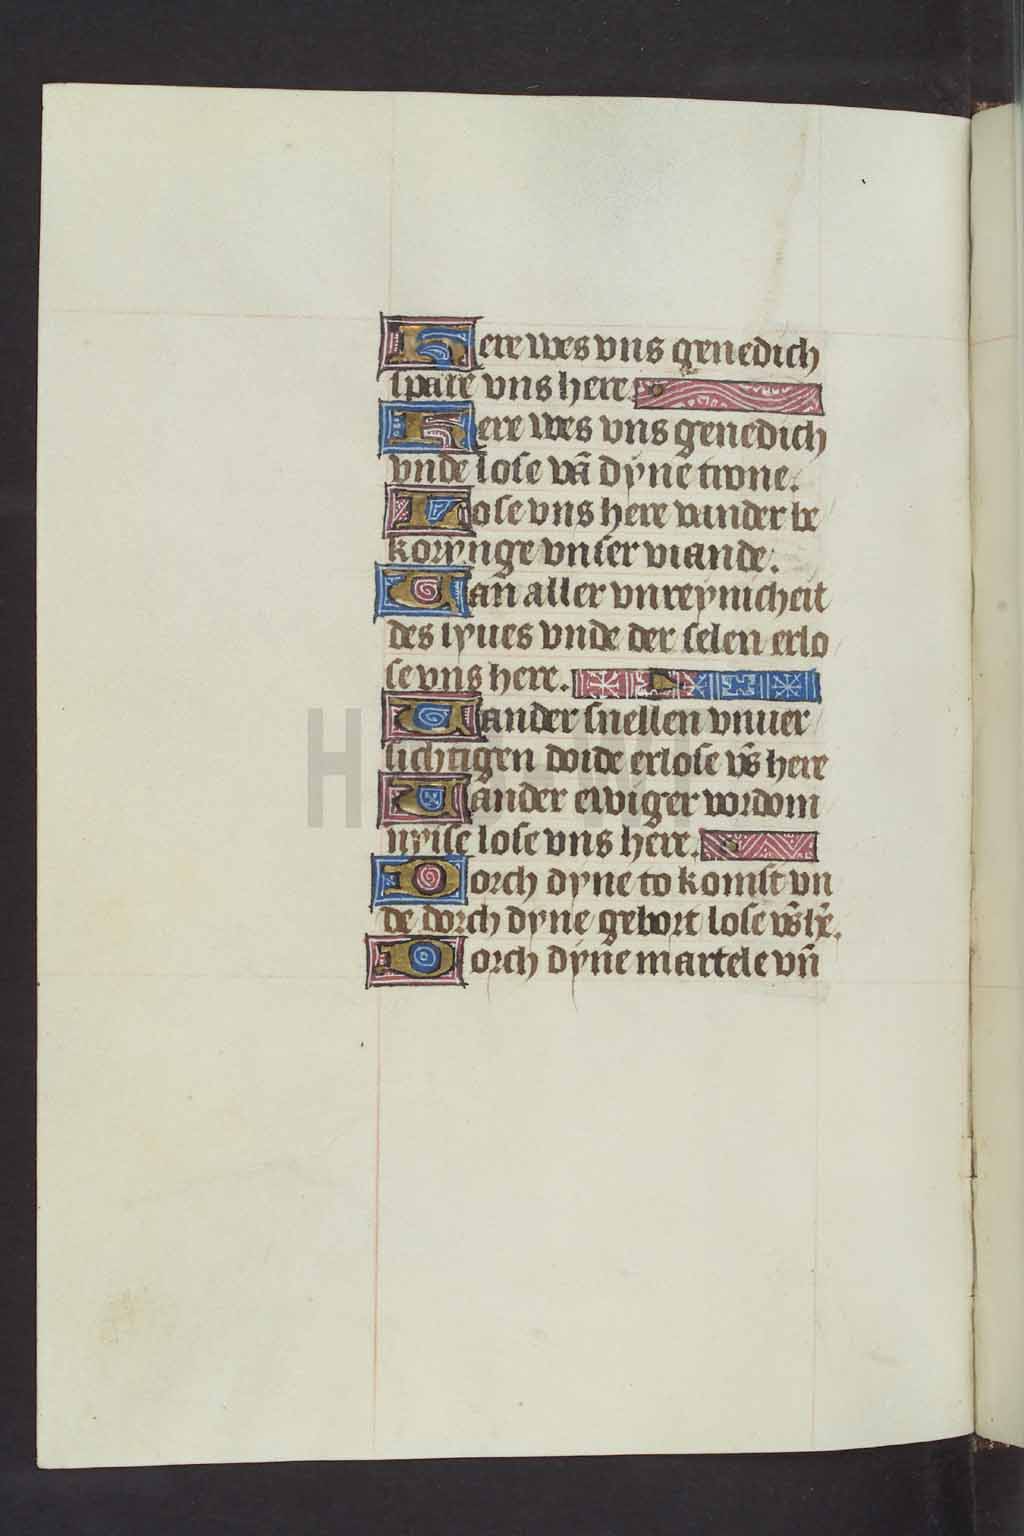 Here wes vns genedich
spare vns here.
Here wes vns genedich
vnde lose vā dyne torne.
Lose vns here vander be
korynge vnser viande.
Uan aller vnreynicheit
des lyues vnde der selen erlo
se vns here.
Uander snellen vnuer
sichtigen doide erlose vs̄ here
Uander ewiger vordom
nyse lose vns here.
Dorch dyne to komst vn
de dorch dyne gebort lose vs̄ hē.
Dorch dyne martele vn̄